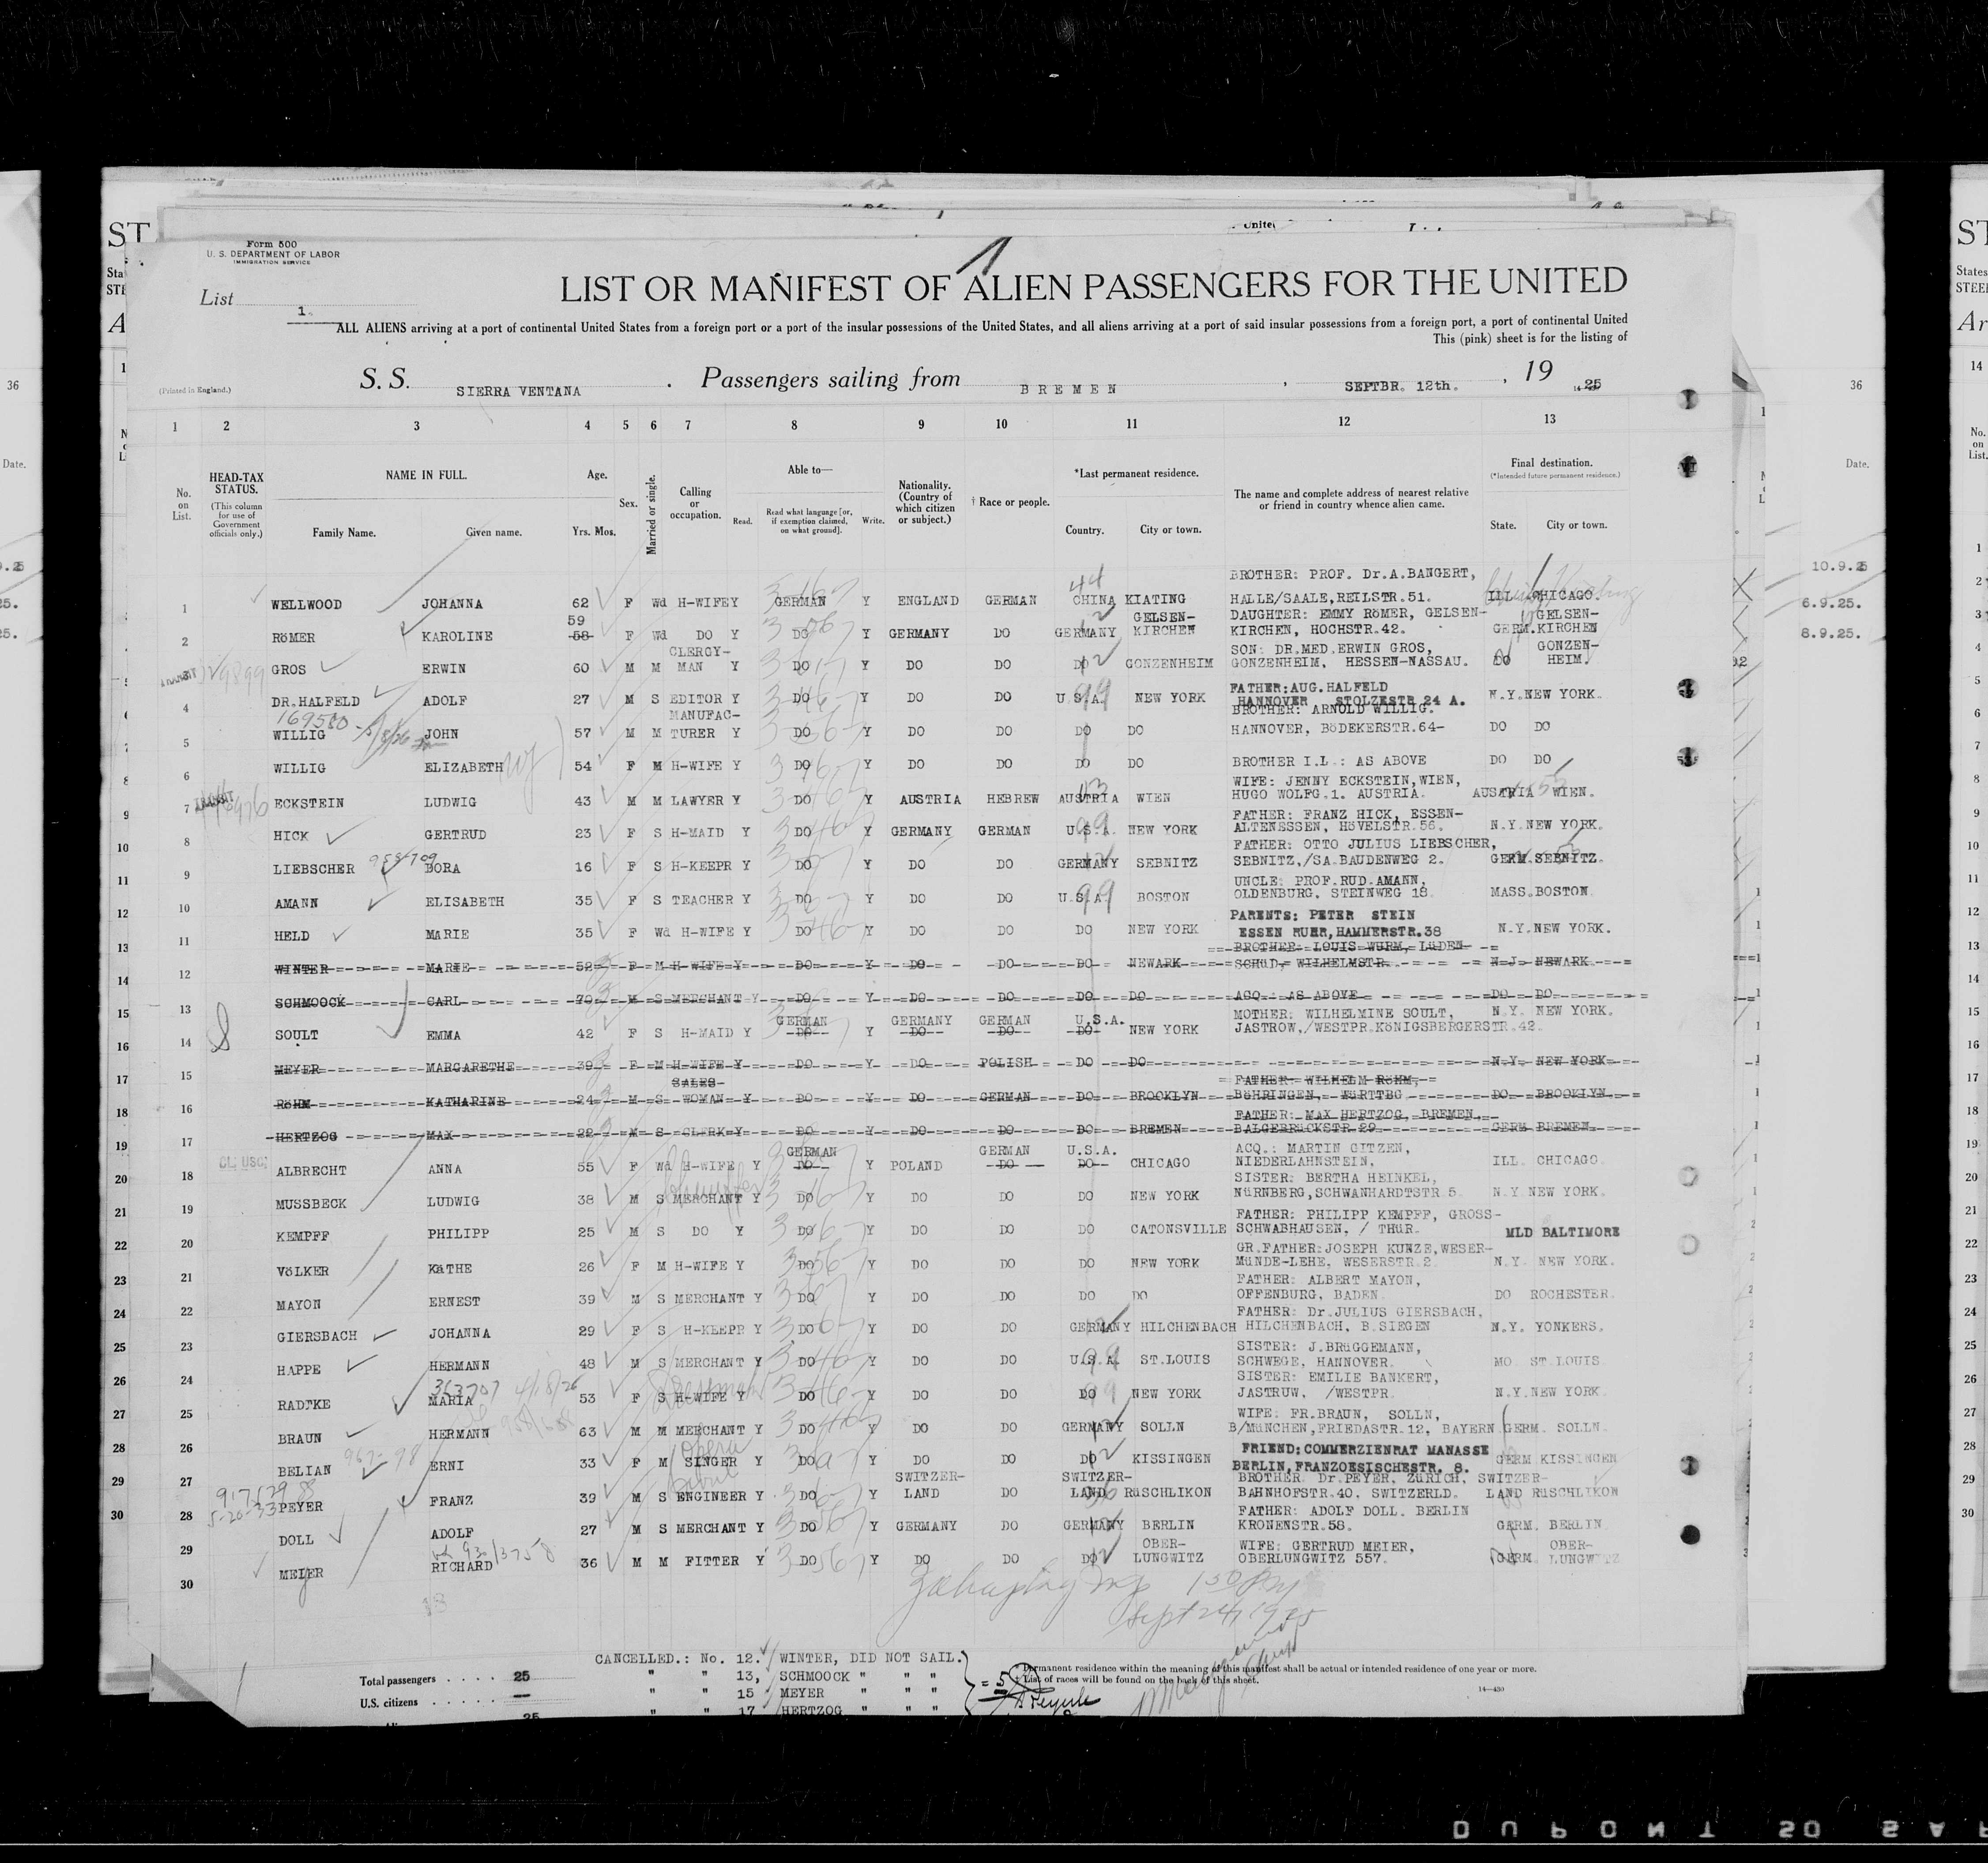 Form 500
U. S. DEPARTMENT OF LABOR
IMMIGRATION SERVICE
List 1.
LIST OR MANIFEST OF ALIEN PASSENGERS FOR THE UNITED
ALL ALIENS arriving at a port of continental United States from a foreign port or a port of the insular possessions of the United States, and all aliens arriving at a port of said insular possessions from a foreign port, a port of continental United
This (pink) sheet is for the listing of
(Printed in England.)
S. S. SIERRA VENTANA. Passengers sailing from BREMEN, SEPTBR. 12th., 19 25
1 2 3 4 5 6 7 8 9 10 11 12 13
No. on List.
HEAD-TAX STATUS. (This column for use of Government officials only.)
NAME IN FULL. Family Name. Given name.
Age. Yrs. Mos.
Sex.
Married or single.
Calling or occupation.
Able to— Read. Read what language [or, if exemption claimed, on what ground]. Write.
Nationality. (Country of which citizen or subject.)
† Race or people.
*Last permanent residence. Country. City or town.
The name and complete address of nearest relative or friend in country whence alien came.
Final destination. (*Intended future permanent residence.) State. City or town.
1 WELLWOOD JOHANNA 62 F Wd H-WIFE Y GERMAN Y ENGLAND GERMAN CHINA KIATING BROTHER: PROF. Dr.A.BANGERT, HALLE/SAALE,REILSTR.51. ILL. CHICAGO.
2 RöMER KAROLINE 59 58 F Wd DO Y DO Y GERMANY DO GERMANY GELSEN-KIRCHEN DAUGHTER: EMMY RöMER, GELSEN-KIRCHEN, HOCHSTR.42. GERM. GELSEN-KIRCHEN
3 GROS ERWIN 60 M M CLERGY-MAN Y DO Y DO DO DO GONZENHEIM SON: DR.MED.ERWIN GROS, GONZENHEIM, HESSEN-NASSAU. DO GONZEN-HEIM.
4 DR.HALFELD ADOLF 27 M S EDITOR Y DO Y DO DO U.S.A. NEW YORK FATHER:AUG.HALFELD HANNOVER STOLZESTR 24 A. N.Y. NEW YORK.
169580
5 WILLIG JOHN 57 M M MANUFAC-TURER Y DO Y DO DO DO DO BROTHER: ARNOLD WILLIG. HANNOVER, BöDEKERSTR.64- DO DO
6 WILLIG ELIZABETH 54 F M H-WIFE Y DO Y DO DO DO DO BROTHER I.L.: AS ABOVE DO DO
7 ECKSTEIN LUDWIG 43 M M LAWYER Y DO Y AUSTRIA HEBREW AUSTRIA WIEN WIFE: JENNY ECKSTEIN,WIEN, HUGO WOLFG.1. AUSTRIA. AUSTRIA WIEN.
8 HICK GERTRUD 23 F S H-MAID Y DO Y GERMANY GERMAN U.S.A. NEW YORK FATHER: FRANZ HICK, ESSEN-ALTENESSEN, HöVELSTR.56. N.Y. NEW YORK.
9 LIEBSCHER DORA 16 F S H-KEEPR Y DO Y DO DO GERMANY SEBNITZ FATHER: OTTO JULIUS LIEBSCHER, SEBNITZ,/SA.BAUDENWEG 2. GERM. SEBNITZ.
10 AMANN ELISABETH 35 F S TEACHER Y DO Y DO DO U.S.A. BOSTON UNCLE: PROF.RUD.AMANN, OLDENBURG, STEINWEG 18. MASS. BOSTON.
11 HELD MARIE 35 F Wd H-WIFE Y DO Y DO DO DO NEW YORK PARENTS: PETER STEIN ESSEN RUHR,HAMMERSTR.38 N.Y. NEW YORK.
12 WINTER MARIE 52 F M H-WIFE Y DO Y DO DO DO NEWARK BROTHER: LOUIS WURM, LüDEN-SCHüD, WILHELMSTR. N.J. NEWARK
13 SCHMOOCK CARL 70 M S MERCHANT Y DO Y DO DO DO DO ACQ.: AS ABOVE DO DO
14 SOULT EMMA 42 F S H-MAID Y GERMAN DO Y GERMANY DO GERMAN DO U.S.A. DO NEW YORK MOTHER: WILHELMINE SOULT, JASTROW,/WESTPR.KöNIGSBERGERSTR.42. N.Y. NEW YORK.
15 MEYER MARGARETHE 39 F M H-WIFE Y DO Y DO POLISH DO DO N.Y. NEW YORK
16 RöHM KATHARINE 24 M S SALES-WOMAN Y DO Y DO GERMAN DO BROOKLYN FATHER: WILHELM RöHM, BöHRINGEN, WüRTTBG DO BROOKLYN.
17 HERTZOG MAX 22 M S CLERK Y DO Y DO DO DO BREMEN FATHER: MAX HERTZOG, BREMEN, BALGEBRüCKSTR.29 GERM BREMEN
18 ALBRECHT ANNA 55 F Wd H-WIFE Y GERMAN DO Y POLAND GERMAN DO U.S.A. DO CHICAGO ACQ.: MARTIN GITZEN, NIEDERLAHNSTEIN, ILL. CHICAGO.
19 MUSSBECK LUDWIG 38 M S MERCHANT Y DO Y DO DO DO NEW YORK SISTER: BERTHA HEINKEL, NüRNBERG,SCHWANHARDTSTR 5. N.Y. NEW YORK.
20 KEMPFF PHILIPP 25 M S DO Y DO Y DO DO DO CATONSVILLE FATHER: PHILIPP KEMPFF, GROSS-SCHWABHAUSEN, / THüR. MLD BALTIMORE
21 VöLKER KäTHE 26 F M H-WIFE Y DO Y DO DO DO NEW YORK GR.FATHER:JOSEPH KUNZE,WESER-MüNDE-LEHE, WESERSTR.2. N.Y. NEW YORK.
22 MAYON ERNEST 39 M S MERCHANT Y DO Y DO DO DO DO FATHER: ALBERT MAYON, OFFENBURG, BADEN. DO ROCHESTER.
23 GIERSBACH JOHANNA 29 F S H-KEEPR Y DO Y DO DO GERMANY HILCHENBACH FATHER: Dr.JULIUS GIERSBACH, HILCHENBACH, B.SIEGEN N.Y. YONKERS.
24 HAPPE HERMANN 48 M S MERCHANT Y DO Y DO DO U.S.A. ST.LOUIS SISTER: J.BRüGGEMANN, SCHWEGE, HANNOVER. MO. ST.LOUIS.
25 RADTKE MARIA 53 F S H-WIFE Y DO Y DO DO DO NEW YORK SISTER: EMILIE BANKERT, JASTRUW, /WESTPR. N.Y. NEW YORK.
26 BRAUN HERMANN 63 M M MERCHANT Y DO Y DO DO GERMANY SOLLN WIFE: FR.BRAUN, SOLLN, B/MüNCHEN,FRIEDASTR.12, BAYERN GERM. SOLLN.
27 BELIAN ERNI 33 F M Opera SINGER Y DO Y DO DO DO KISSINGEN FRIEND:COMMERZIENRAT MANASSE BERLIN,FRANZOESISCHESTR. 8. GERM. KISSINGEN
28 PEYER FRANZ 39 M S ENGINEER Y DO Y SWITZER-LAND DO SWITZER-LAND RüSCHLIKON BROTHER Dr.PEYER, ZüRICH, BAHNHOFSTR.40. SWITZERLD. SWITZER-LAND RüSCHLIKON
29 DOLL ADOLF 27 M S MERCHANT Y DO Y GERMANY DO GERMANY BERLIN FATHER: ADOLF DOLL. BERLIN KRONENSTR.58. GERM. BERLIN
30 MEIER RICHARD 36 M M FITTER Y DO Y DO DO DO OBER-LUNGWITZ WIFE: GERTRUD MEIER, OBERLUNGWITZ 557. GERM. OBER-LUNGWITZ
Sept 24, 1925
CANCELLED.: No. 12. WINTER, DID NOT SAIL.
" " 13, SCHMOOCK " " "
" " 15 MEYER " " "
" " 17 HERTZOG " " "
= 5
Total passengers . . . . 25
U.S. citizens . . . . . —
25
* Permanent residence within the meaning of this manifest shall be actual or intended residence of one year or more.
† List of races will be found on the back of this sheet.
14—430
36
Date.
10.9.25
6.9.25.
8.9.25.
DUPONT SO SAF